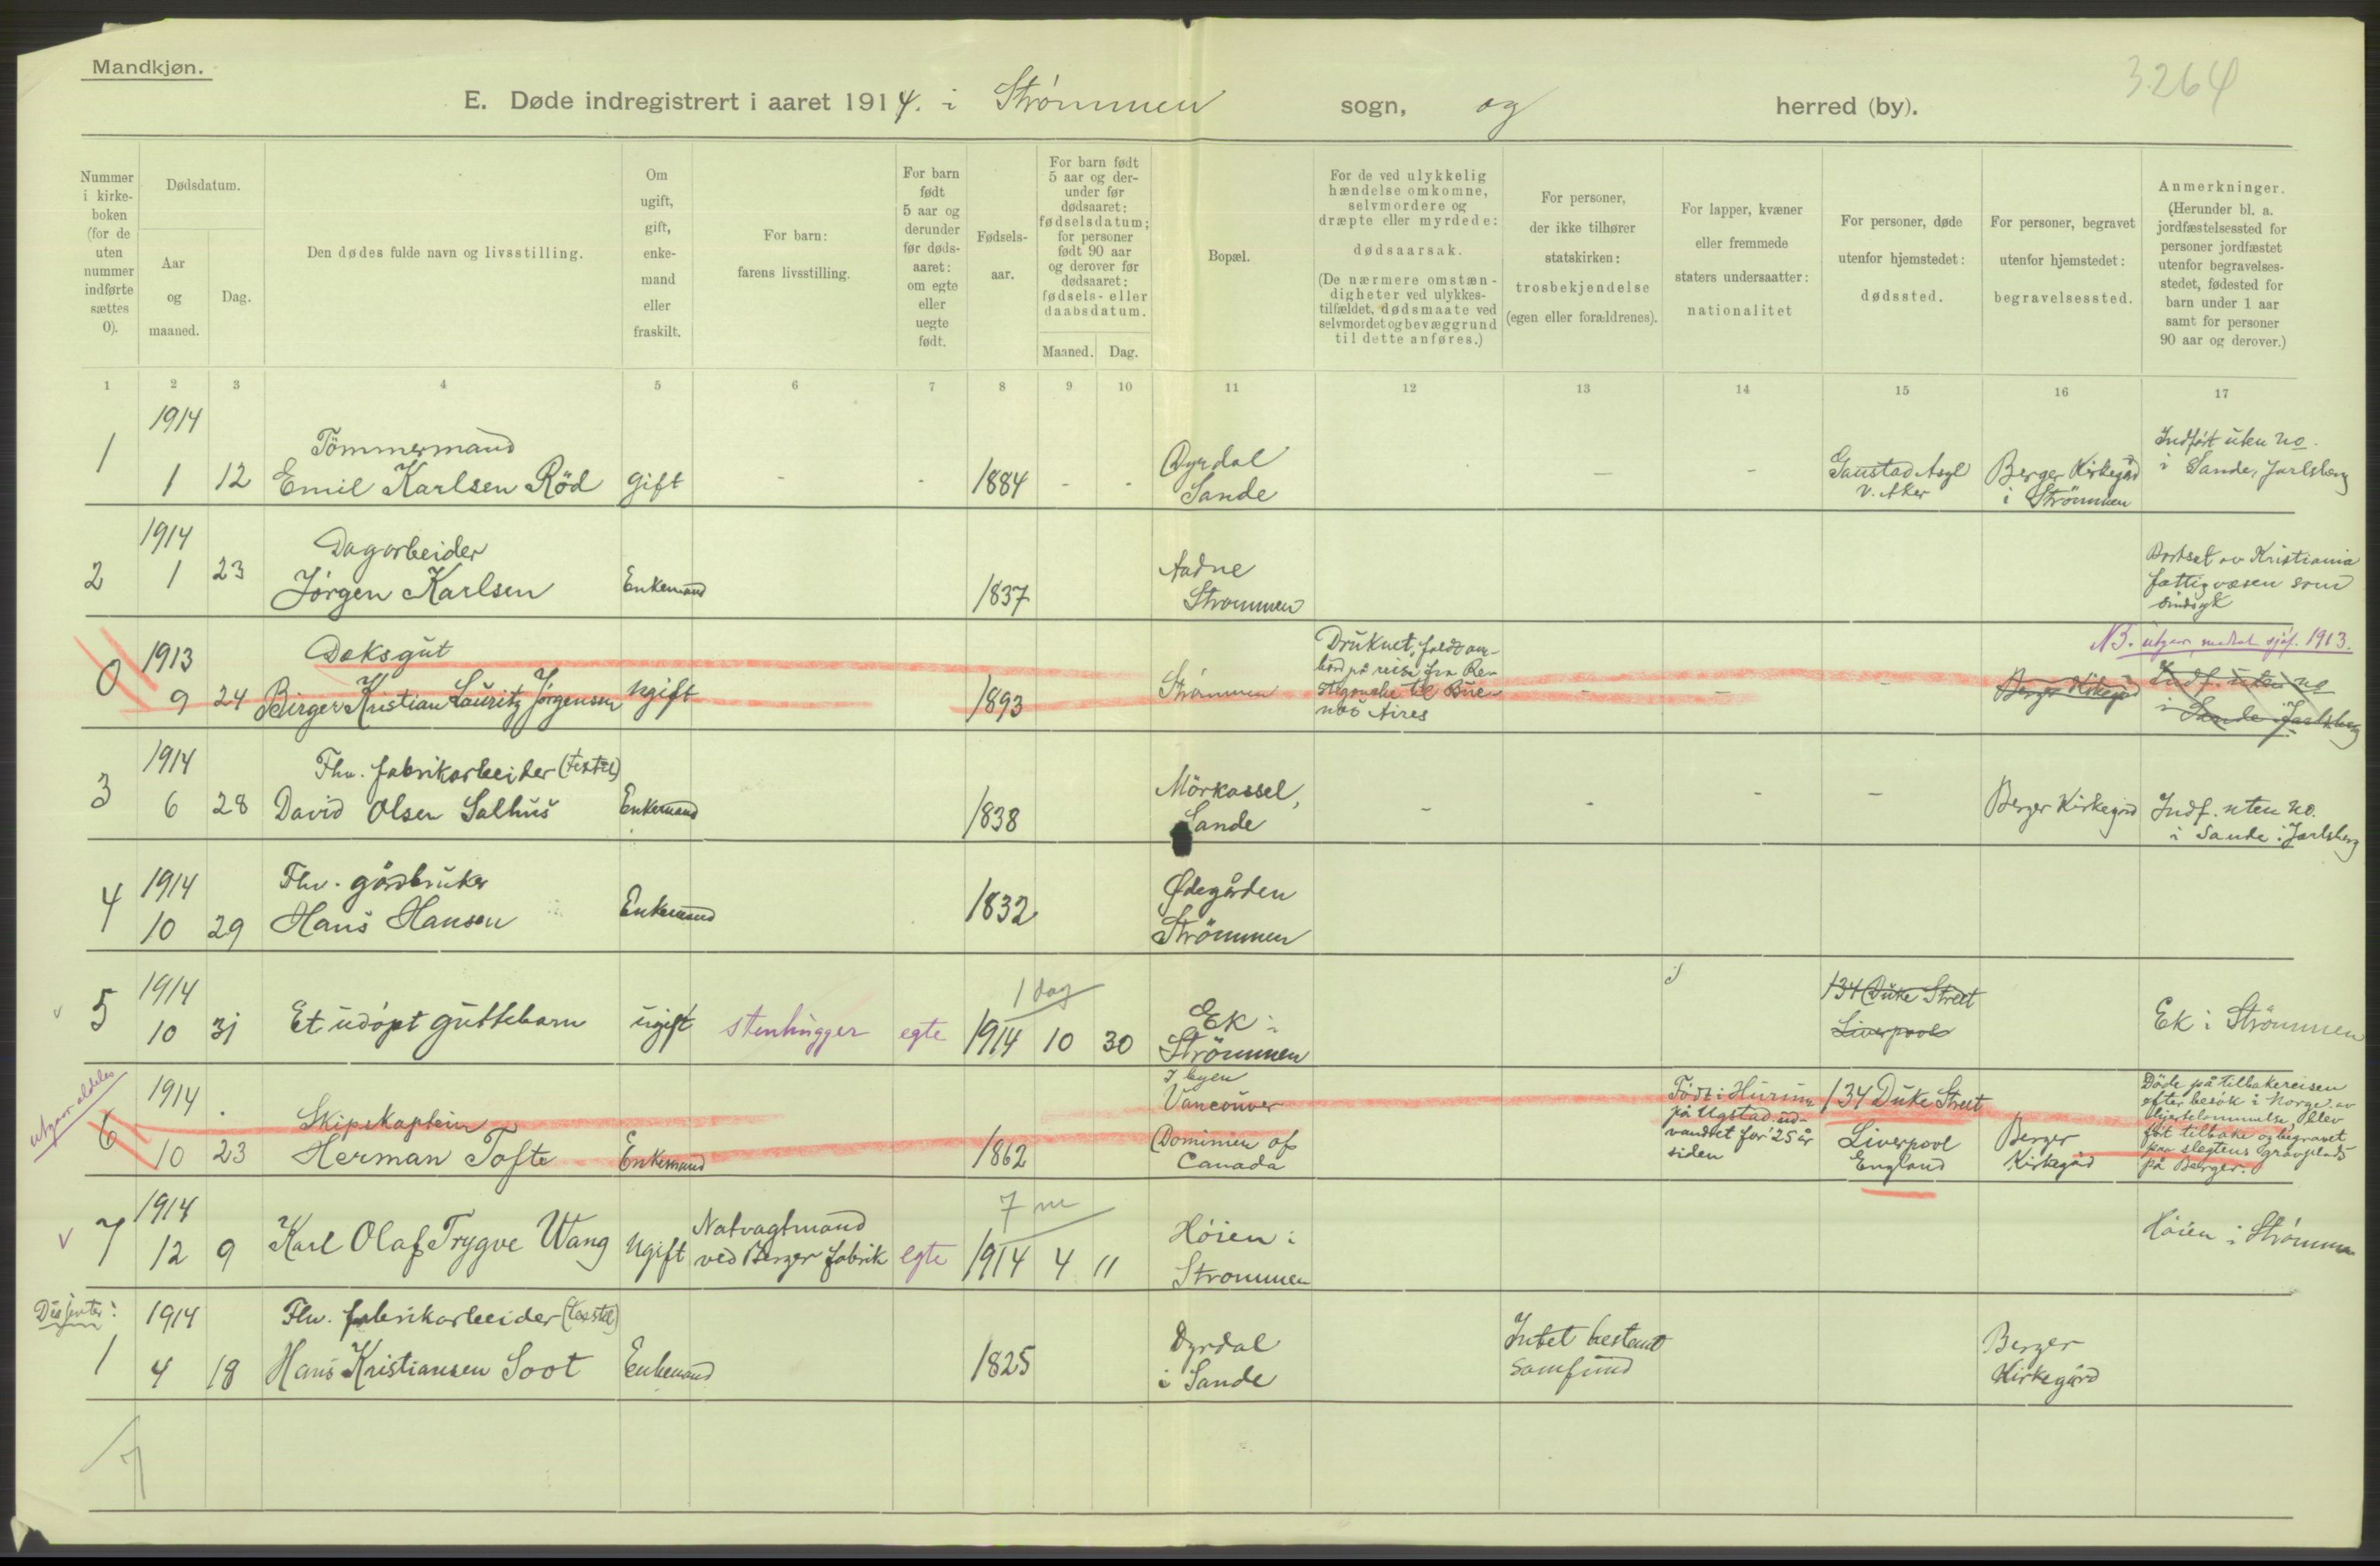 Mandkjøn.
3264
E. Døde indregistrert i aaret 1914. i Strömmen sogn, og herred (by).
Nummer i kirke-boken (for de uten nummer indførte sættes 0).
Dødsdatum.
Aar og maaned.
Dag.
Den dødes fulde navn og livsstilling.
Om ugift, gift, enke-mand eller fraskilt.
For barn: farens livsstilling.
For barn født 5 aar og derunder før døds-aaret: om egte eller uegte født.
Fødsels-aar.
For barn født 5 aar og der-under før dødsaaret: fødselsdatum; for personer født 90 aar og derover før dødsaaret: fødsels- eller daabsdatum.
Maaned.
Dag.
Bopæl.
For de ved ulykkelig hændelse omkomne, selvmordere og dræpte eller myrdede: dødsaarsak. (De nærmere omstæn-digheter ved ulykkes-tilfældet, dødsmaate ved selvmordet og bevæggrund til dette anføres.)
For personer, der ikke tilhører statskirken: trosbekjendelse (egen eller forældrenes).
For lapper, kvæner eller fremmede staters undersaatter: nationalitet
For personer, døde utenfor hjemstedet: dødssted.
For personer, begravet utenfor hjemstedet: begravelsessted.
Anmerkninger. (Herunder bl. a. jordfæstelsessted for personer jordfæstet utenfor begravelses-stedet, fødested for barn under 1 aar samt for personer 90 aar og derover.)
1 2 3 4 5 6 7 8 9 10 11 12 13 14 15 16 17
1 1914 1 12 Tömmermand
Emil Karlsen Röd Gift - - 1884 - - Dyrdal
Sande - - Gaustad Asyl
V. Aker Berger Kirkegård
i Strömmen Indført uten no.
i Sande, Jarlsberg
2 1914 1 23 Dagarbeider
Jörgen Karlsen Enkemand 1837 Aadne
Strommen Bortsat av Kristiania
fattigvæsen som
sindsyk
NB. utgaar, medtat sjöf. 1913.
0 1913 9 24 Dæksgut
Birger Kristian Lauritz Jørgensen ugift 1893 Strömmen Druknet, faldt over-
bord på reise fra
til Bue-
nos Aires - - - Berger Kirkegård Indf. uten no
i Sande Jarlsberg
3 1914 6 28 Fhv. fabrikarbeider (textil)
David Olsen Salhus Enkemand 1838 Mörkassel,
Sande - - - - Berger Kirkegård Indf. uten no.
i Sande i Jarlsberg
4 1914 10 29 Fhv. gårdbruker
Hans Hansen Enkemand 1832 Ødegården
Strömmen
5 1914 10 31 Et udöpt guttebarn ugift stenhugger egte 1 dag
1914 10 30 Ek i
Strömmen 134 Duke Street
Liverpool Ek i Strömmen
utgaar aldeles
6 1914 10 23 Skipskaptein
Herman Tofte Enkemand 1862 I byen
Vancouver
Dominion of
Canada Födt i Hurum
på Ugstad. ud-
vandret for 25 år
siden 134 Duke Street
Liverpool
England Berger
Kirkegård Döde på tilbakereisen
efter besök i Norge av
hjertelammelse, blev
fört tilbake og begravet
paa slegtens gravplads
på Berger.
7 1914 12 9 Karl Olaf Trygve Wang Ugift Natvagtmand
ved Berger fabrik egte 7 m
1914 4 11 Höien i
Strommen Höien i Strömmen
Dissenter:
1 1914 4 18 Fhv. fabrikarbeider (textil)
Hans Kristiansen Soot Enkemand 1825 Dyrdal
i Sande Intet bestemt
samfund Berger
Kirkegård
7